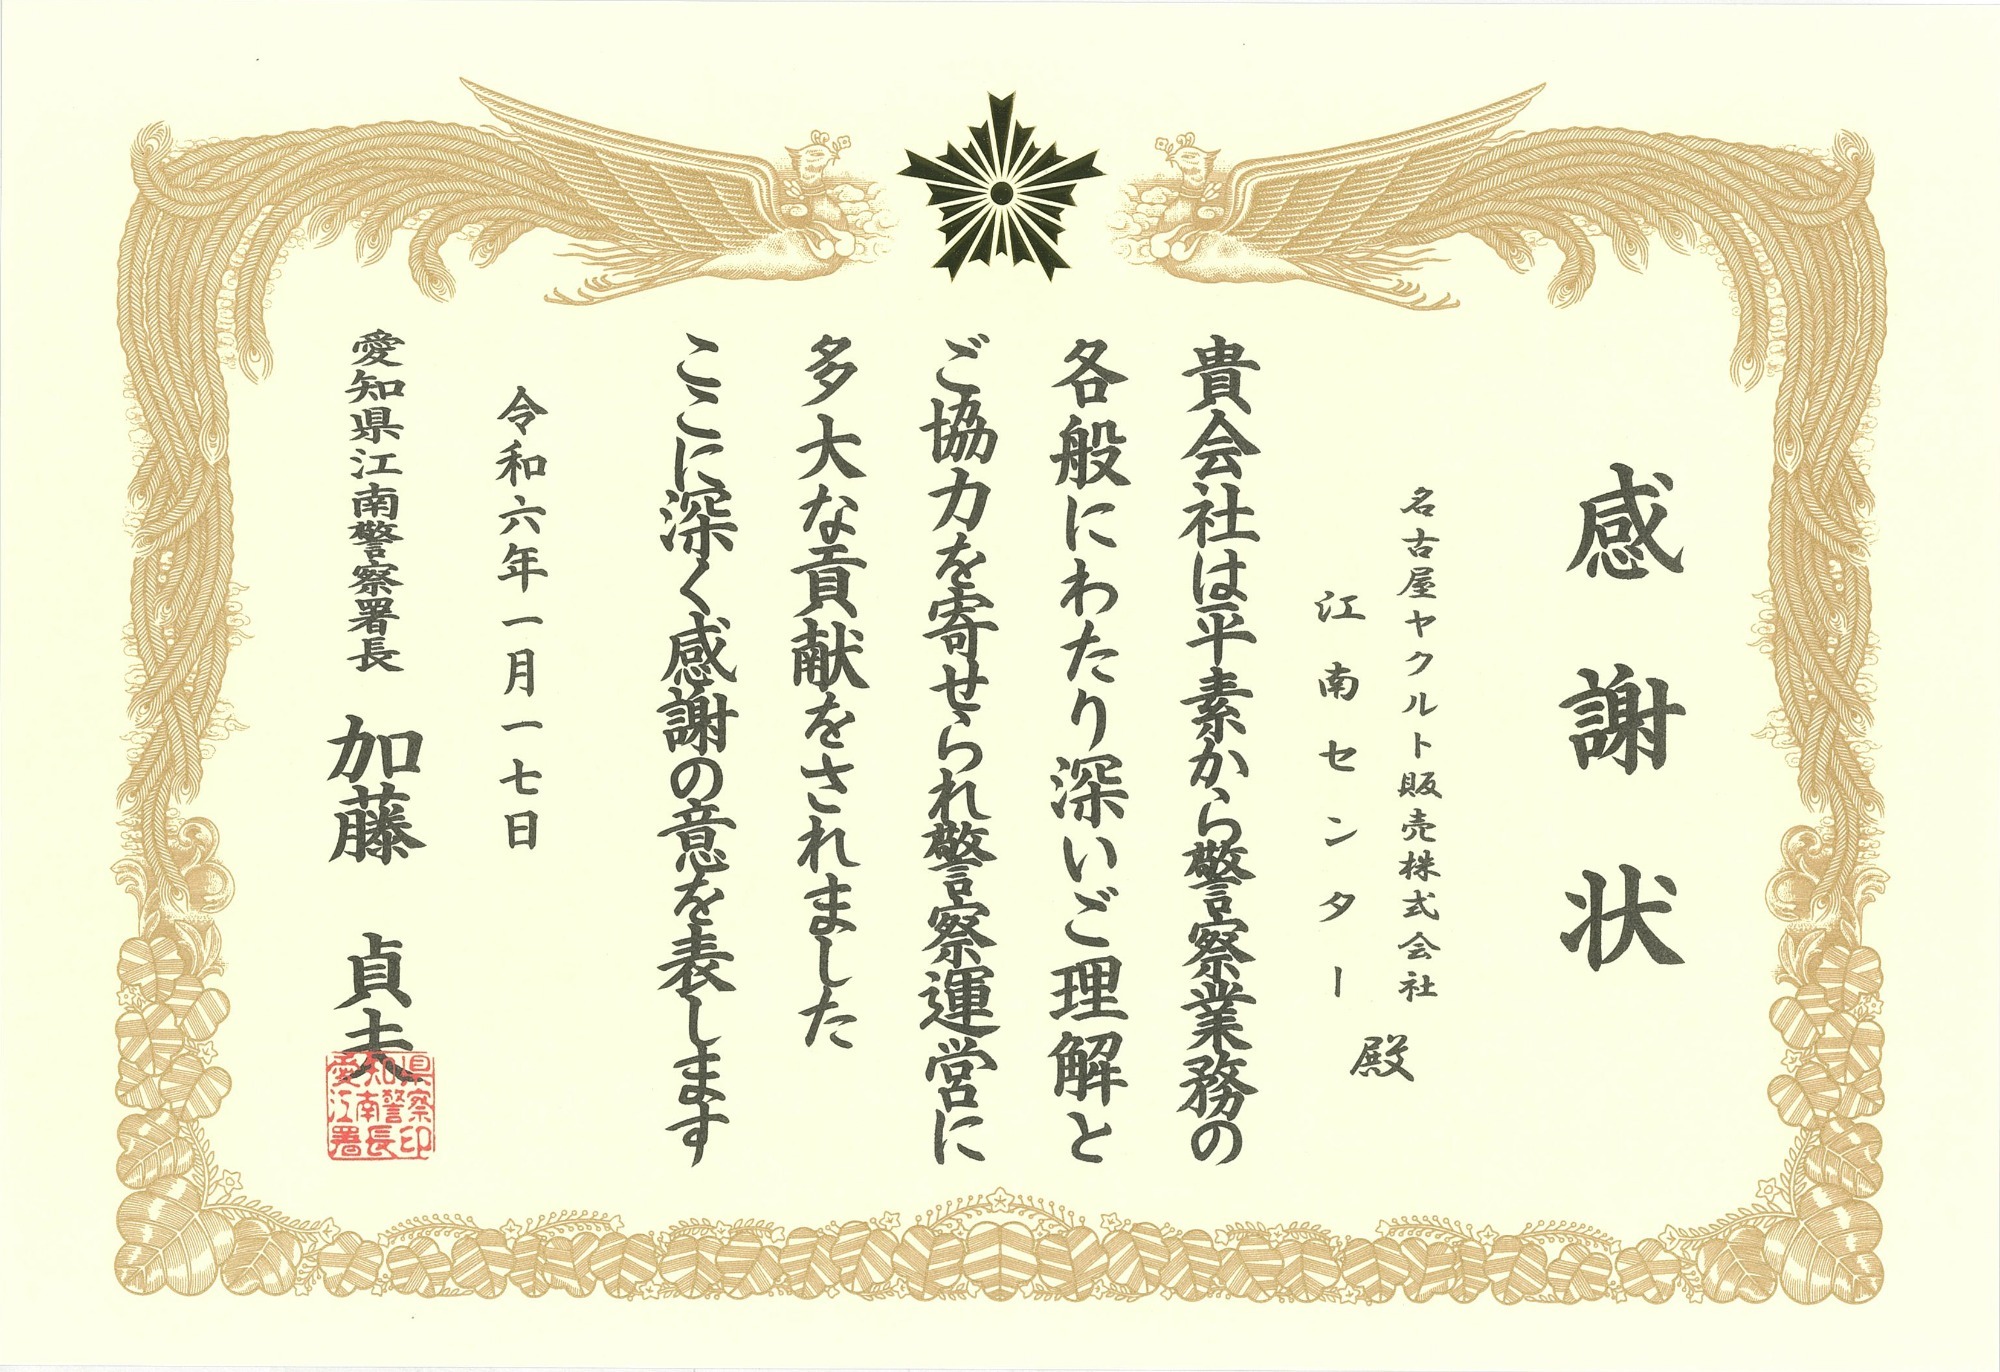 感謝状
名古屋ヤクルト販売株式会社
江南センター
殿
貴会社は平素から警察業務の
各般にわたり深いご理解と
ご協力を寄せられ警察運営に
多大な貢献をされました
ここに深く感謝の意を表します
令和六年一月一七日
愛知県江南警察署長 加藤 貞夫
愛知県
江南警察
署長印